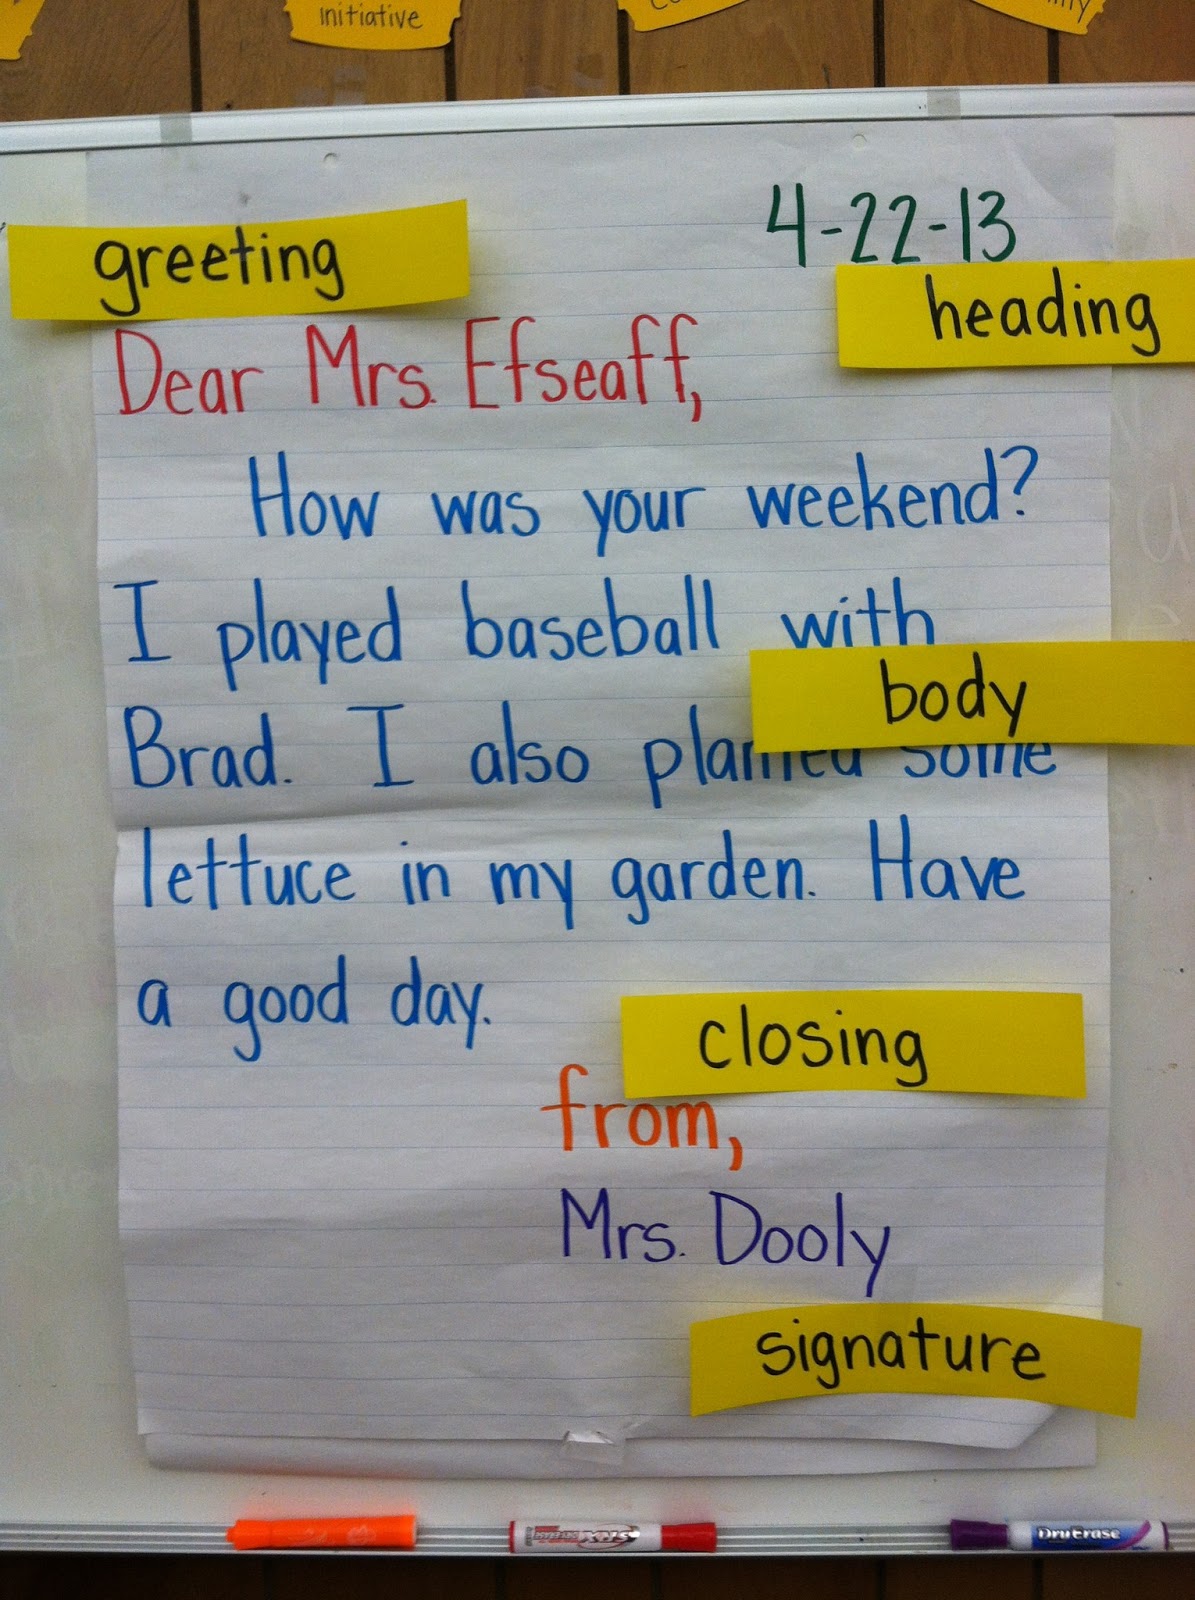 initiative
4-22-13
greeting
heading
Dear Mrs. Efseaff,
How was your weekend?
I played baseball with
body
Brad. I also planted some
lettuce in my garden. Have
a good day.
closing
from,
Mrs. Dooly
signature
EXPO
Dry Erase